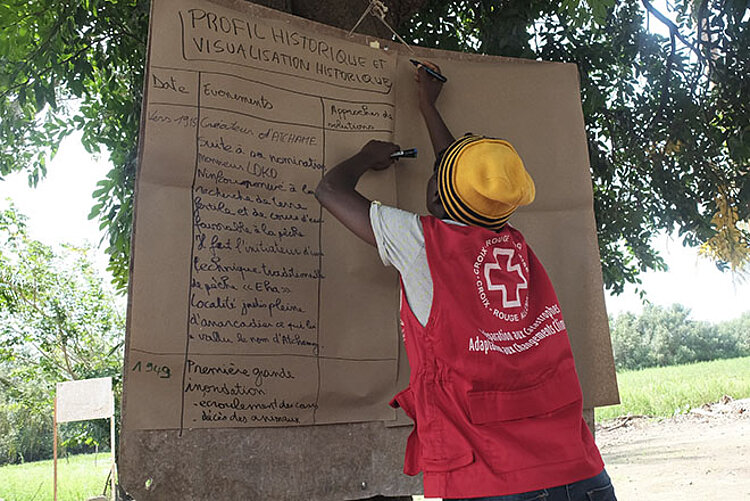 PROFIL HISTORIQUE ET
VISUALISATION HISTORIQUE
Date
Evenements
Approches de
solutions
Vers 1915
Createur d'ATCHAME
Suite à sa nomination
Monsieur LDKD
à la
recherche de terre
fertile et de cours d'eau
favorable à la pêche
Il fut l'initiateur d'une
technique traditionnelle
de pêche << Eha >>
Localité jadis pleine
d'anarcadier ce qui lui
vallu le nom d'Atchamey
1949
Première grande
inondation
- ecroulement des cases
- décès des animaux
CROIX-ROUGE
CROIX-ROUGE
aux Catastrophes
Adaptation aux Changements